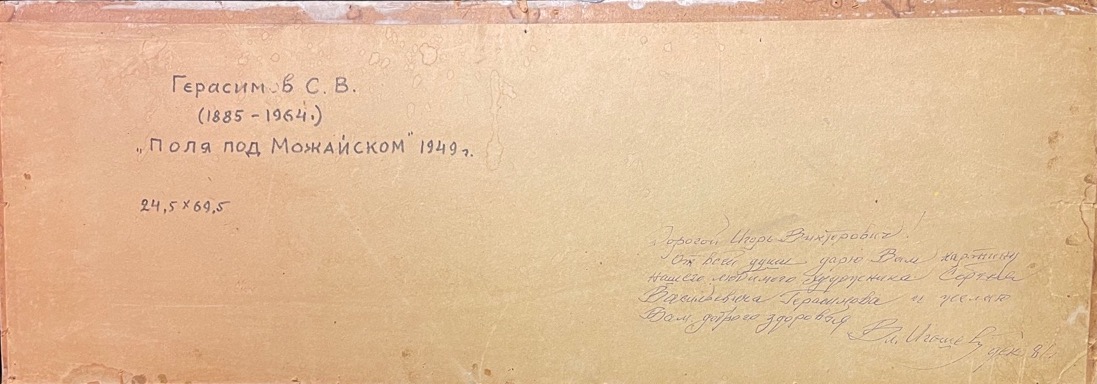 Герасимов С. В.
(1885 - 1964.)
„Поля под Можайском" 1949 г.
24,5 х 69,5
Дорогой Игорь Викторович!
От всей души дарю Вам картину
нашего любимого художника Сергея
Васильевича Герасимова и желаю
Вам доброго здоровья
Вл. Игошев
дек